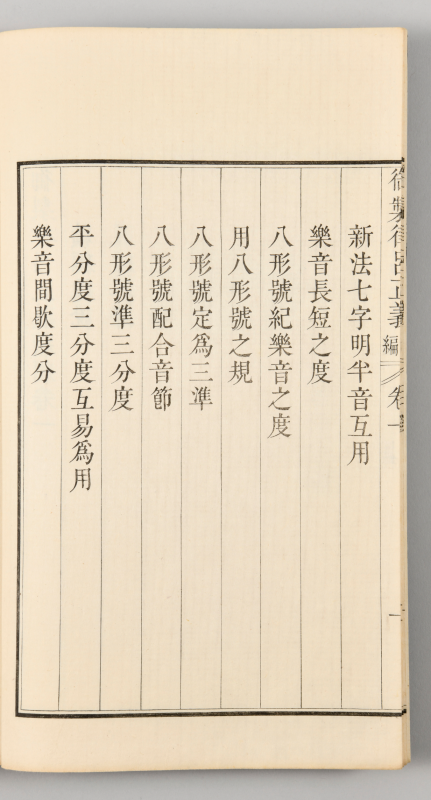 御製律呂正義
編
卷一
二
新法七字明半音互用
樂音長短之度
八形號紀樂音之度
用八形號之規
八形號定爲三準
八形號配合音節
八形號準三分度
平分度三分度互易爲用
樂音間歇度分